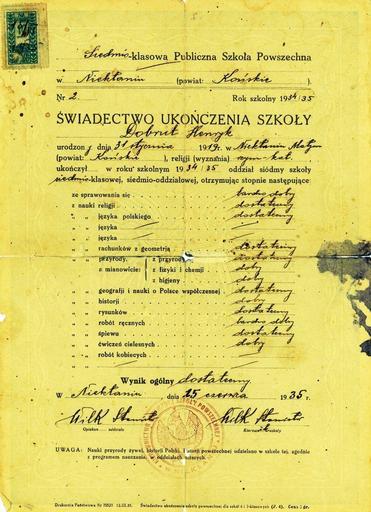 Siedmio-klasowa Publiczna Szkoła Powszechna
w Niekłaniu (powiat: Końskie ).
Nr 2 Rok szkolny 1934/35
ŚWIADECTWO UKOŃCZENIA SZKOŁY
Henryk
urodzon y dnia 31 stycznia 1919 r. w Niekłaniu Małym
(powiat: Końskie ), religji (wyznania) rzym-kat.
ukończył w roku szkolnym 1934/35 oddział siódmy szkoły
siedmio-klasowej, siedmio-oddziałowej, otrzymując stopnie następujące:
ze sprawowania się bardzo dobry
z nauki religji dostateczny
" " języka polskiego dostateczny
" " języka
" " języka
" " rachunków z geometrją dostateczny
" " przyrody, z przyrody dostateczny
" " a mianowicie: z fizyki i chemji dobry
z higjeny dobry
" " geografji i nauki o Polsce współczesnej dostateczny
" " historji dobry
" " rysunków dostateczny
" " robót ręcznych bardzo dobry
" " śpiewu dostateczny
" " ćwiczeń cielesnych dobry
" " robót kobiecych
Wynik ogólny dostateczny
W Niekłaniu dnia 15 czerwca 1935 r.
Wilk Wilk
Opiekun oddziału Kierownik szkoły
UWAGA: Nauki przyrody żywej, historji Polski, i nauki powszechnej udzielano w szkole tej, zgodnie
z programem nauczania, w oddziałach niższych.